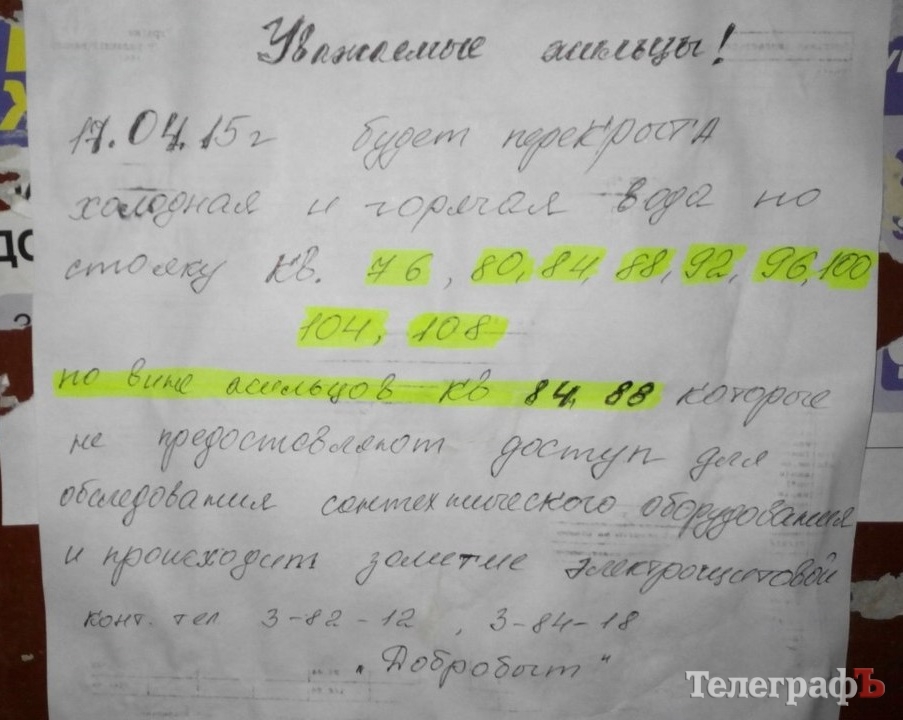 Уважаемые жильцы!
17.04.15г будет перекрыта
холодная и горячая вода по
стояку кв. 76, 80, 84, 88, 92, 96, 100
104, 108
по вине жильцов кв 84, 88 которые
не предоставляют доступ для
обследования сантехнического оборудования
и происходит залитие электрощитовой
конт. тел 3-82-12, 3-84-18
"Добробыт"
ТелеграфЪ